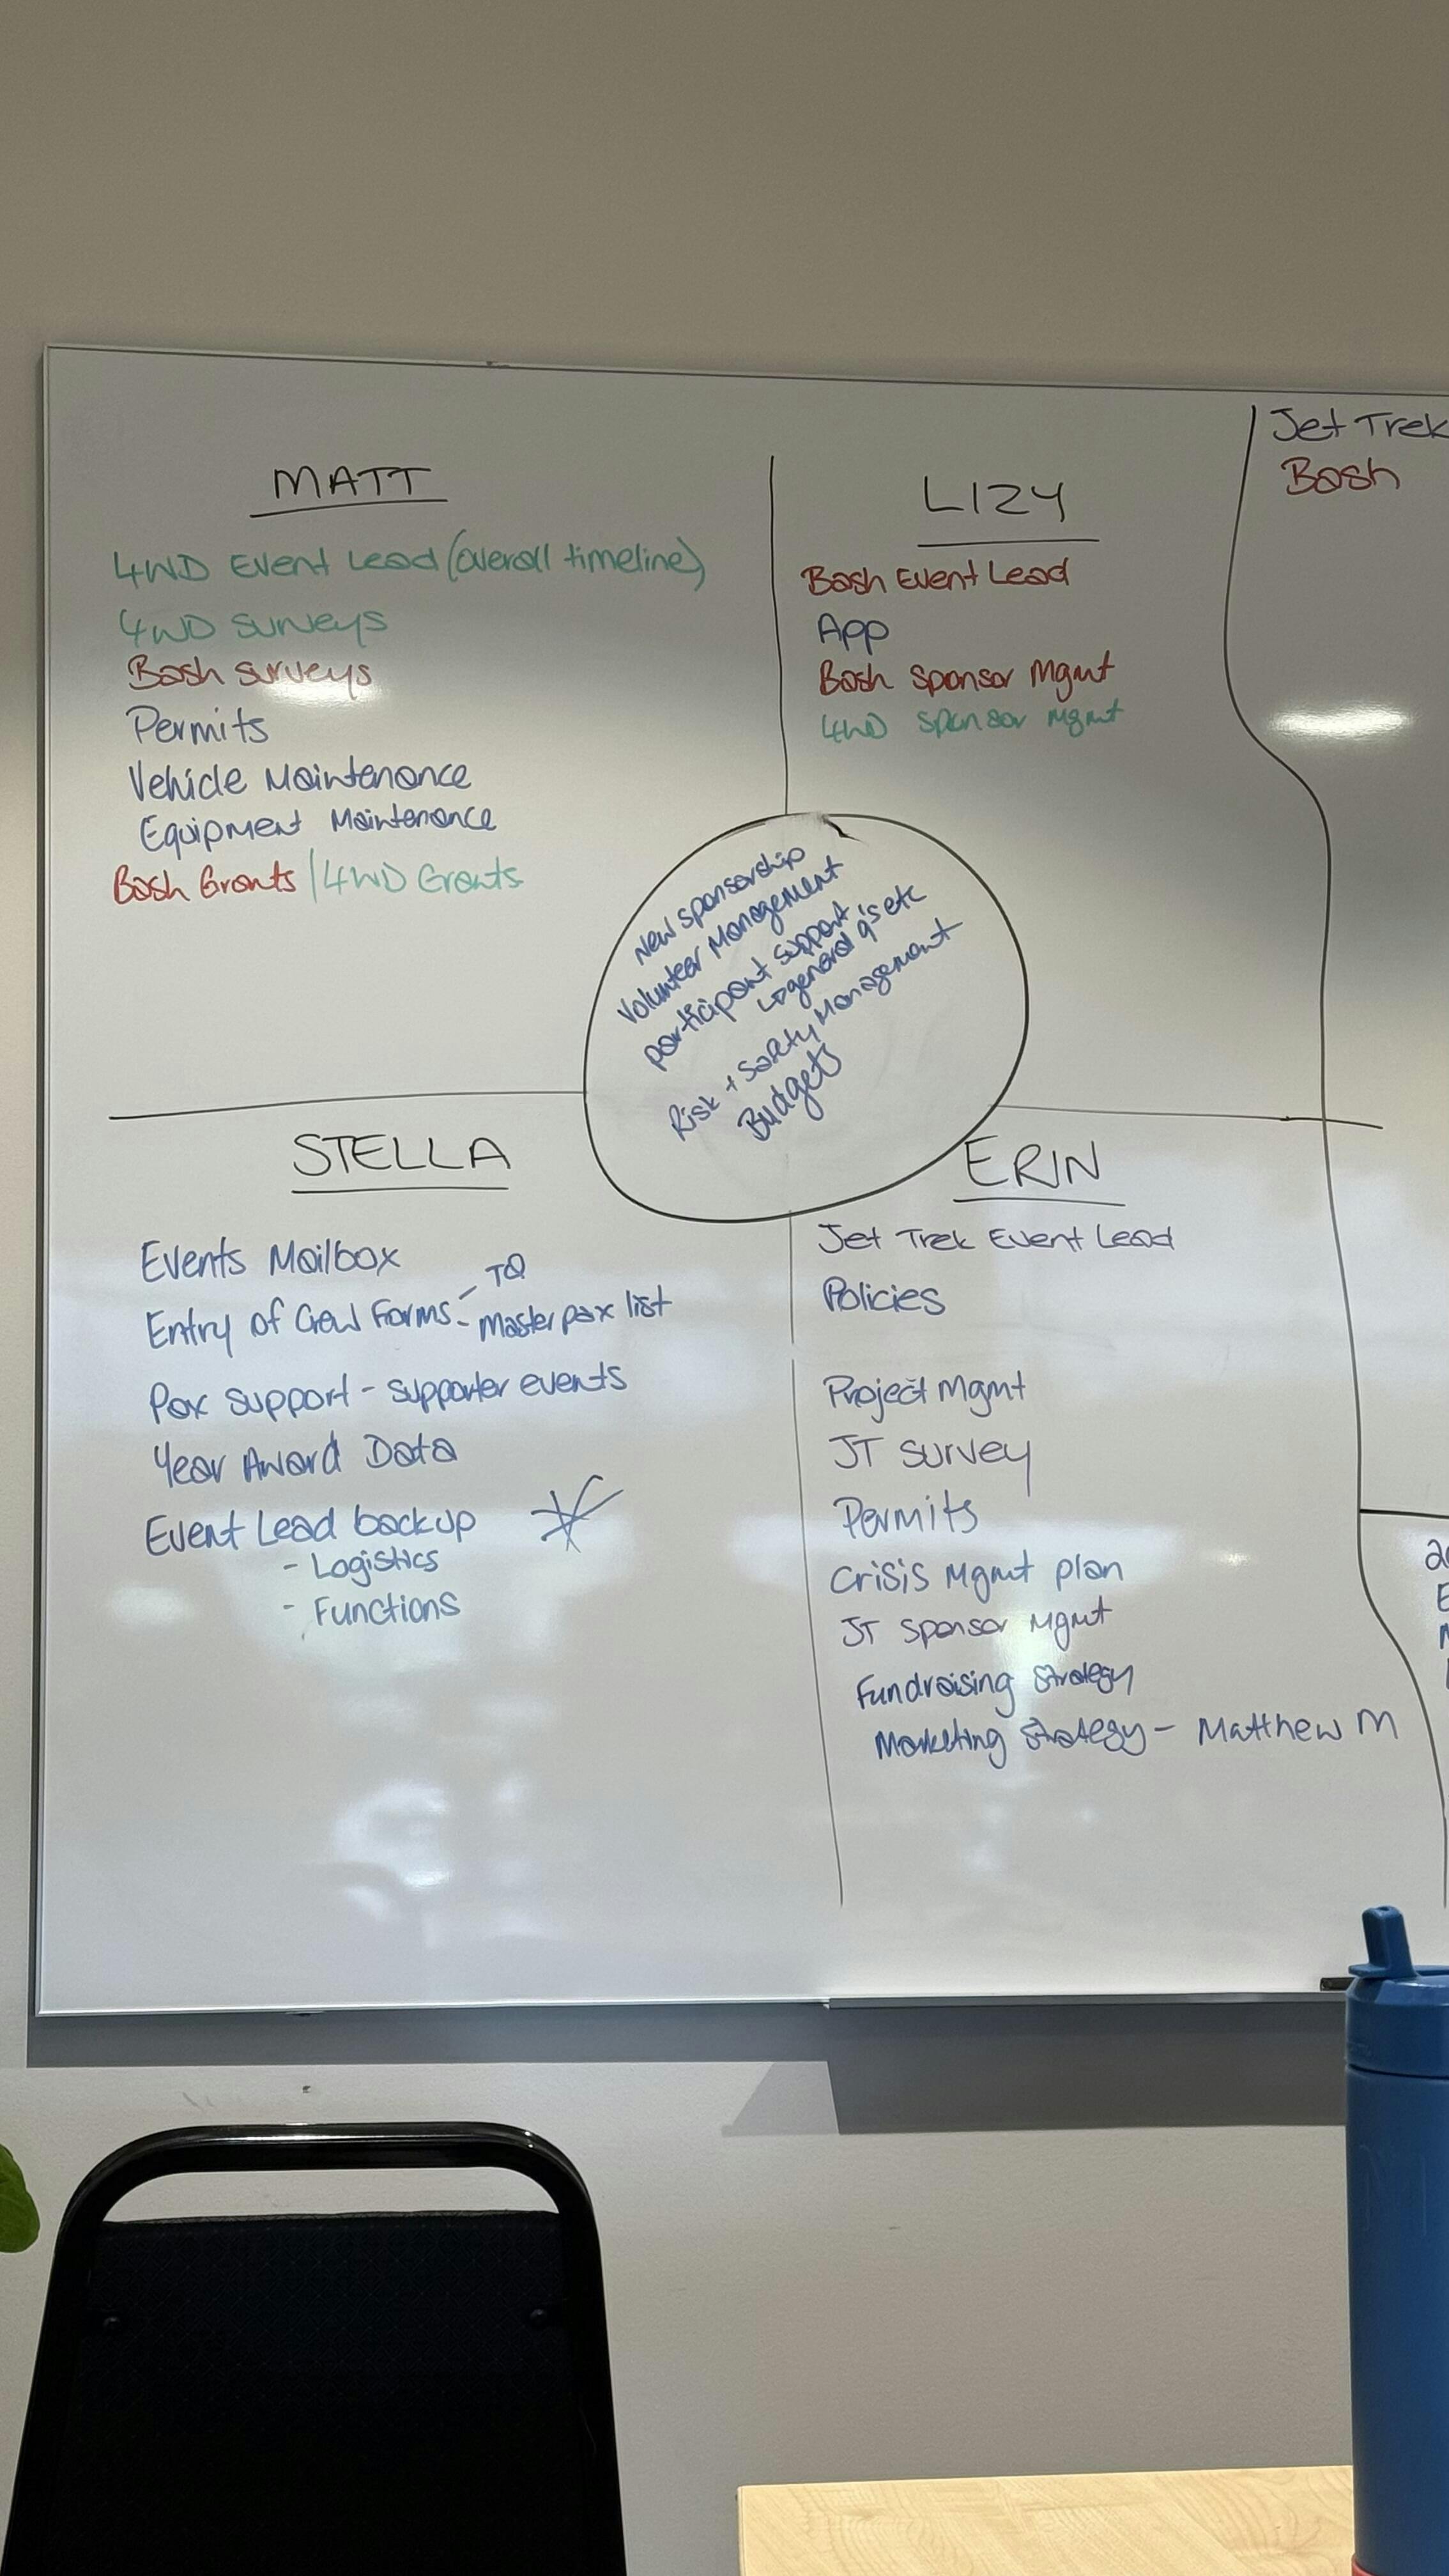 MATT
4WD Event Lead (overall timeline)
4WD Surveys
Bash Surveys
Permits
Vehicle Maintenance
Equipment Maintenance
Bash Grants / 4WD Grants
LIZY
Bash Event Lead
App
Bash Sponsor Mgmt
4WD Sponsor Mgmt
Jet Trek
Bash
New sponsorship
Volunteer Management
participant support
↳ general q's etc
Risk + Safety Management
Budgets
STELLA
Events Mailbox
Entry of Crew Forms - TQ
- Master pax list
Pax support - supporter events
Year Award Data
Event Lead backup
- Logistics
- Functions
ERIN
Jet Trek Event Lead
Policies
Project Mgmt
JT Survey
Permits
Crisis Mgmt plan
JT Sponsor Mgmt
Fundraising Strategy
Marketing Strategy - Matthew M